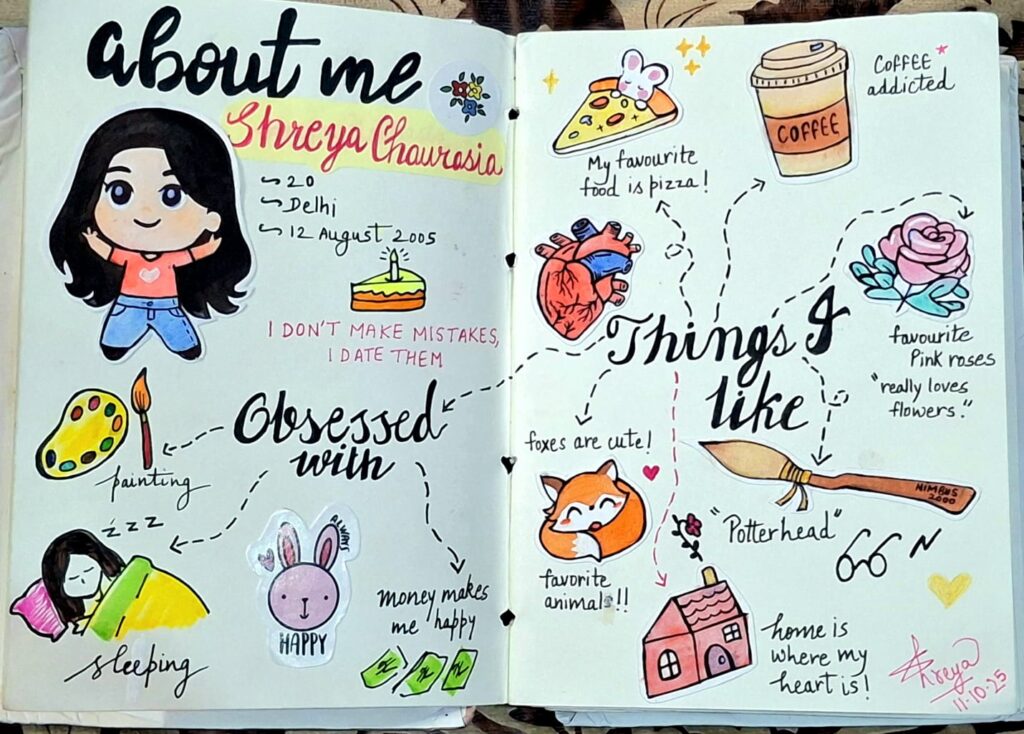 about me
Shreya Chaurasia
20
Delhi
12 August 2005
I DON'T MAKE MISTAKES,
I DATE THEM
Obsessed
with
painting
z z z
sleeping
ALWAYS
HAPPY
money makes
me happy
My favourite
food is pizza!
COFFEE
COFFEE
addicted
Things I
like
favourite
Pink roses
"really loves
flowers."
foxes are cute!
favorite
animals!!
NIMBUS
2000
"Potterhead"
home is
where my
heart is!
Shreya
11-10-25